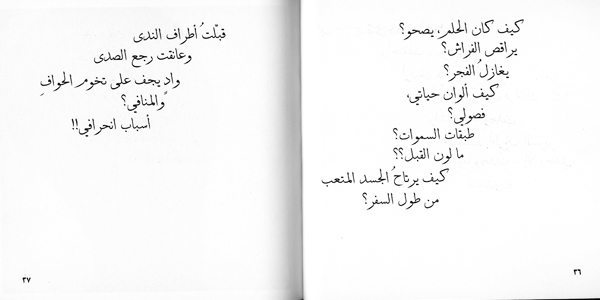 كيف كان الحلم، يصحو؟
يراقص الفراش؟
يغازلُ الفجر؟
كيف ألوان حياتي،
فصولي؟
طبقات السموات؟
ما لون القبل؟؟
كيف يرتاحُ الجسد المتعب
من طول السفر؟
٣٦
قبّلتُ أطراف الندى
وعانقت رجع الصدى
وادٍ يجف على تخوم الحوافِ
والمنافي؟
أسباب انحرافي!!
٣٧